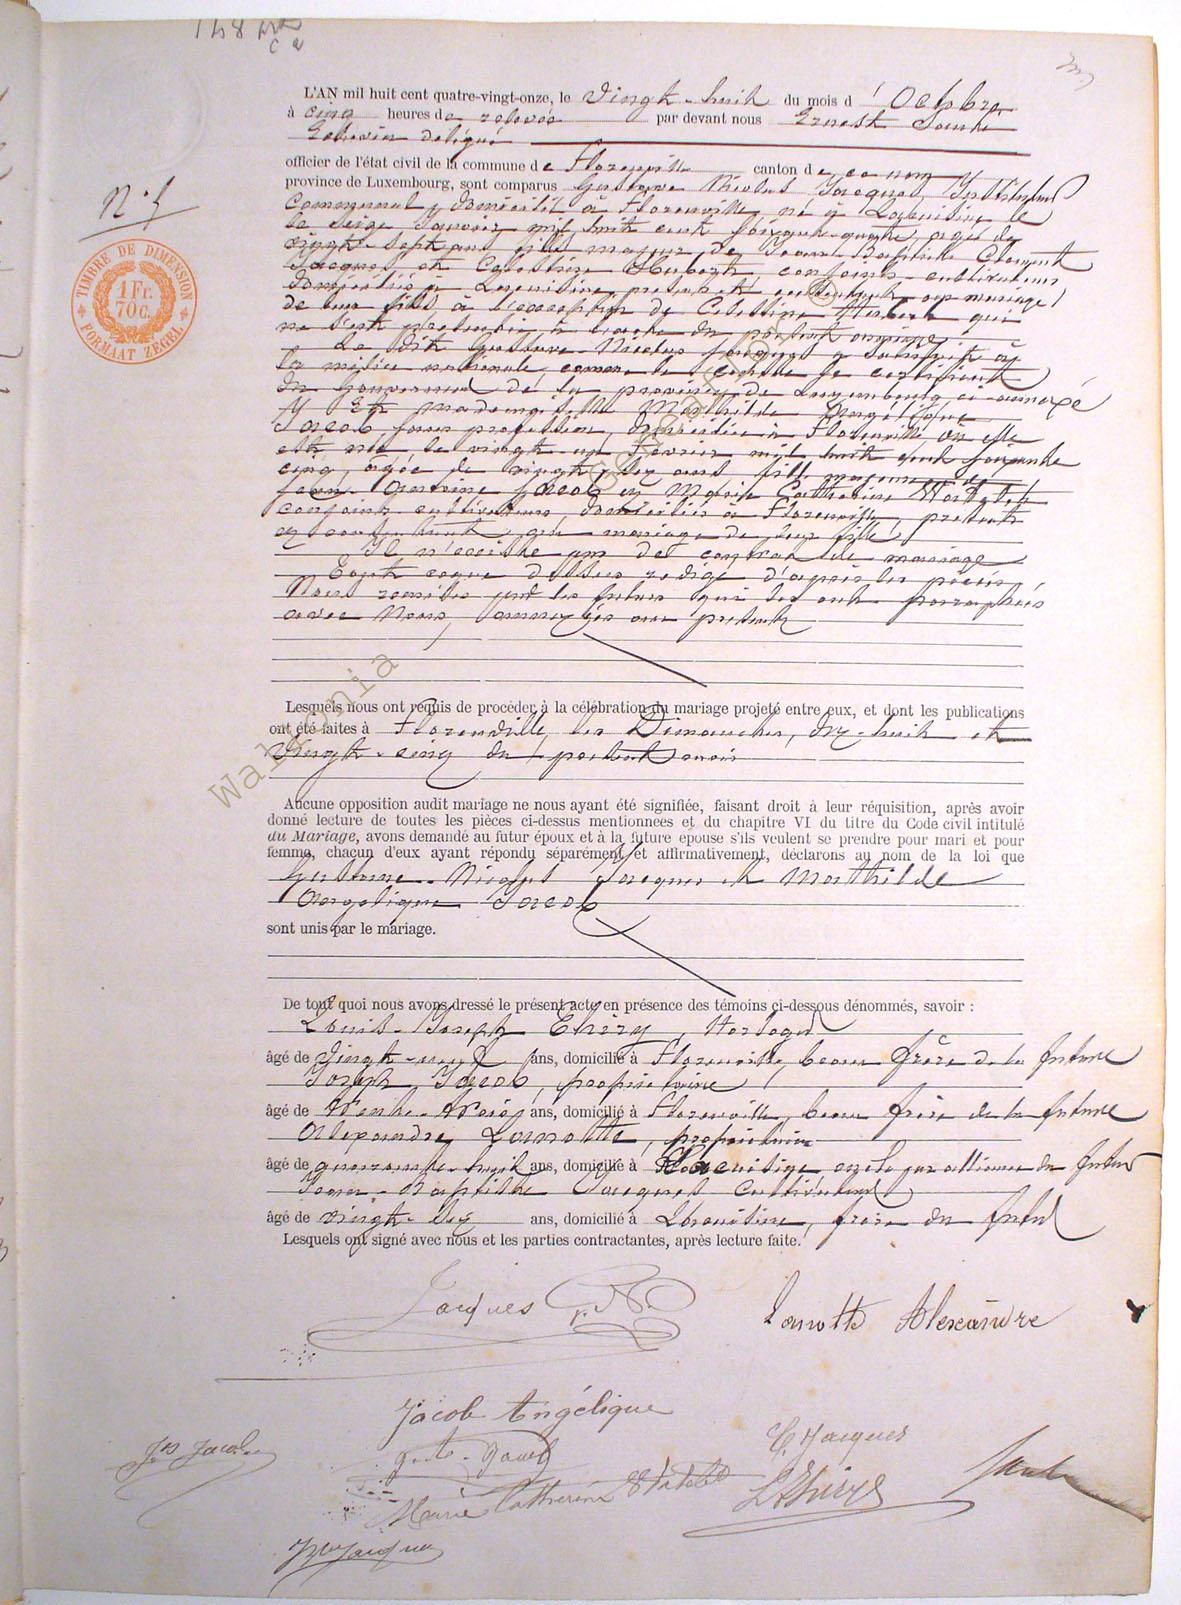 148
N° 5
TIMBRE DE DIMENSION
1 Fr. 70 c.
FORMAAT ZEGEL
L'AN mil huit cent quatre-vingt-onze, le vingt-huit du mois d'Octobre
à cinq heures de relevée par devant nous Ernest
Echevin délégué
officier de l'état civil de la commune de Florenville canton de ce nom
province de Luxembourg, sont comparus Gustave Nicolas Jacques, Instituteur
communal, domicilié à Florenville, né à Lacuisine le
seize Janvier mil huit cent soixante-quatre, agé de
vingt-sept ans, fils majeur de Jean-Baptiste Clément
Jacques et Célestine Hubert, conjoints-cultivateurs
domiciliés à Lacuisine, consentant au mariage
de leur fils, à l'exception de Célestine Hubert qui
ne s'est présentée à l'acte du présent mariage
Le dit Gustave-Nicolas Jacques a satisfait à
la milice nationale, comme le constate le certificat
du Gouverneur de la province de Luxembourg ci-annexé
Et mademoiselle Mathilde Angélique
Jacob, sans profession, domiciliée à Florenville, où elle
est née le vingt un Février mil huit cent soixante
cinq, agée de vingt-six ans, fille majeure de
Jean-Antoine Jacob et Marie Catherine
conjoints-cultivateurs, domiciliés à Florenville, présents
et consentants au mariage de leur fille
Il n'existe pas de contrat de mariage
ci-dessus rédigé d'après les pièces
Nous remises par les futurs qui les ont paraphées
avec Nous, annexées au présent
Lesquels nous ont requis de procéder à la célébration du mariage projeté entre eux, et dont les publications
ont été faites à Florenville, les Dimanches, dix-huit et
vingt-cinq du présent mois
Aucune opposition audit mariage ne nous ayant été signifiée, faisant droit à leur réquisition, après avoir
donné lecture de toutes les pièces ci-dessus mentionnees et du chapitre VI du titre du Code civil intitulé
du Mariage, avons demandé au futur époux et à la future epouse s'ils veulent se prendre pour mari et pour
femme, chacun d'eux ayant répondu séparément et affirmativement, déclarons au nom de la loi que
Gustave-Nicolas Jacques et Mathilde
Angélique Jacob
sont unis par le mariage.
De tout quoi nous avons dressé le présent acte en présence des témoins ci-dessous dénommés, savoir :
Louis-Joseph Thiry, Horloger
âgé de vingt-neuf ans, domicilié à Florenville, beau frère de la future
Joseph Jacob, propriétaire
âgé de trente-trois ans, domicilié à Florenville, beau frère de la future
Alexandre Lamotte, propriétaire
âgé de quarante-huit ans, domicilié à Lacuisine oncle par alliance du futur
Jean-Baptiste Jacques Cultivateur
âgé de vingt-six ans, domicilié à Lacuisine, frère du futur
Lesquels ont signé avec nous et les parties contractantes, après lecture faite.
Jacques
Lamotte Alexandre
Jacob Angélique
C. Jacques
Jos Jacob
L. Thiry
Marie Catherine
Jacques
Wallonia